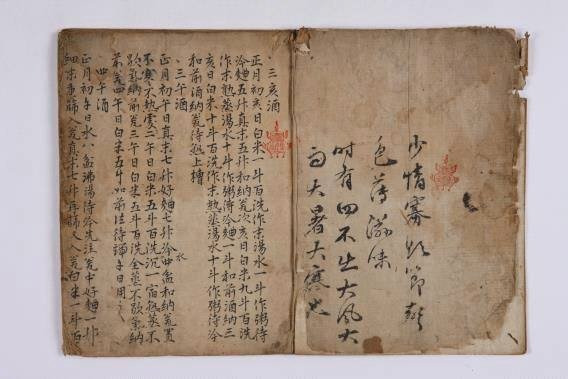 少情寡欲節聲
色薄滋味
時有四不出大風大
雨大暑大寒也
、三亥酒
正月初亥日白米一斗百洗作末湯水一斗作粥待
冷麯五升真末五升和納瓮次亥日白米九斗百洗
作末熟蒸湯水十斗作粥待冷麯一斗和前酒納三
亥日白米十斗百洗作末熟蒸湯水十斗作粥待冷
和前酒納瓮待熟上槽
、三午酒
正月初午日真末七升好麯七升冷水四盆和納瓮置
不寒不熱處二午日白米五斗百洗沉一宿熟蒸不
歇氣納前瓮三午日白米五斗百洗全蒸不歇氣納
前瓮四午日白米五斗如前法待端午日用之
、四午酒
正月初午日水八盆沸湯待冷先注瓮中好麯一升
細末重篩入瓮真末七升再篩入瓮白米一斗百